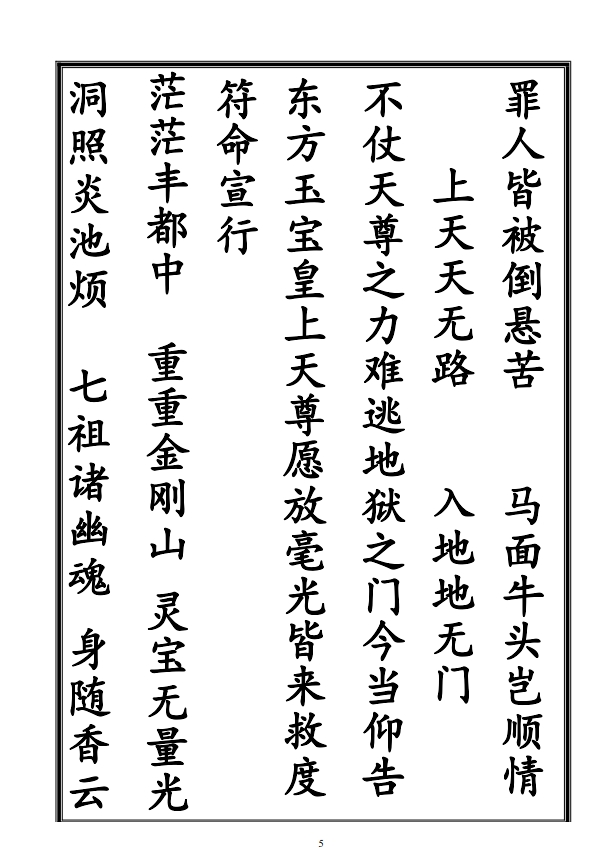 罪人皆被倒悬苦 马面牛头岂顺情
上天天无路 入地地无门
不仗天尊之力难逃地狱之门今当仰告
东方玉宝皇上天尊愿放毫光皆来救度
符命宣行
茫茫丰都中 重重金刚山 灵宝无量光
洞照炎池烦 七祖诸幽魂 身随香云
5